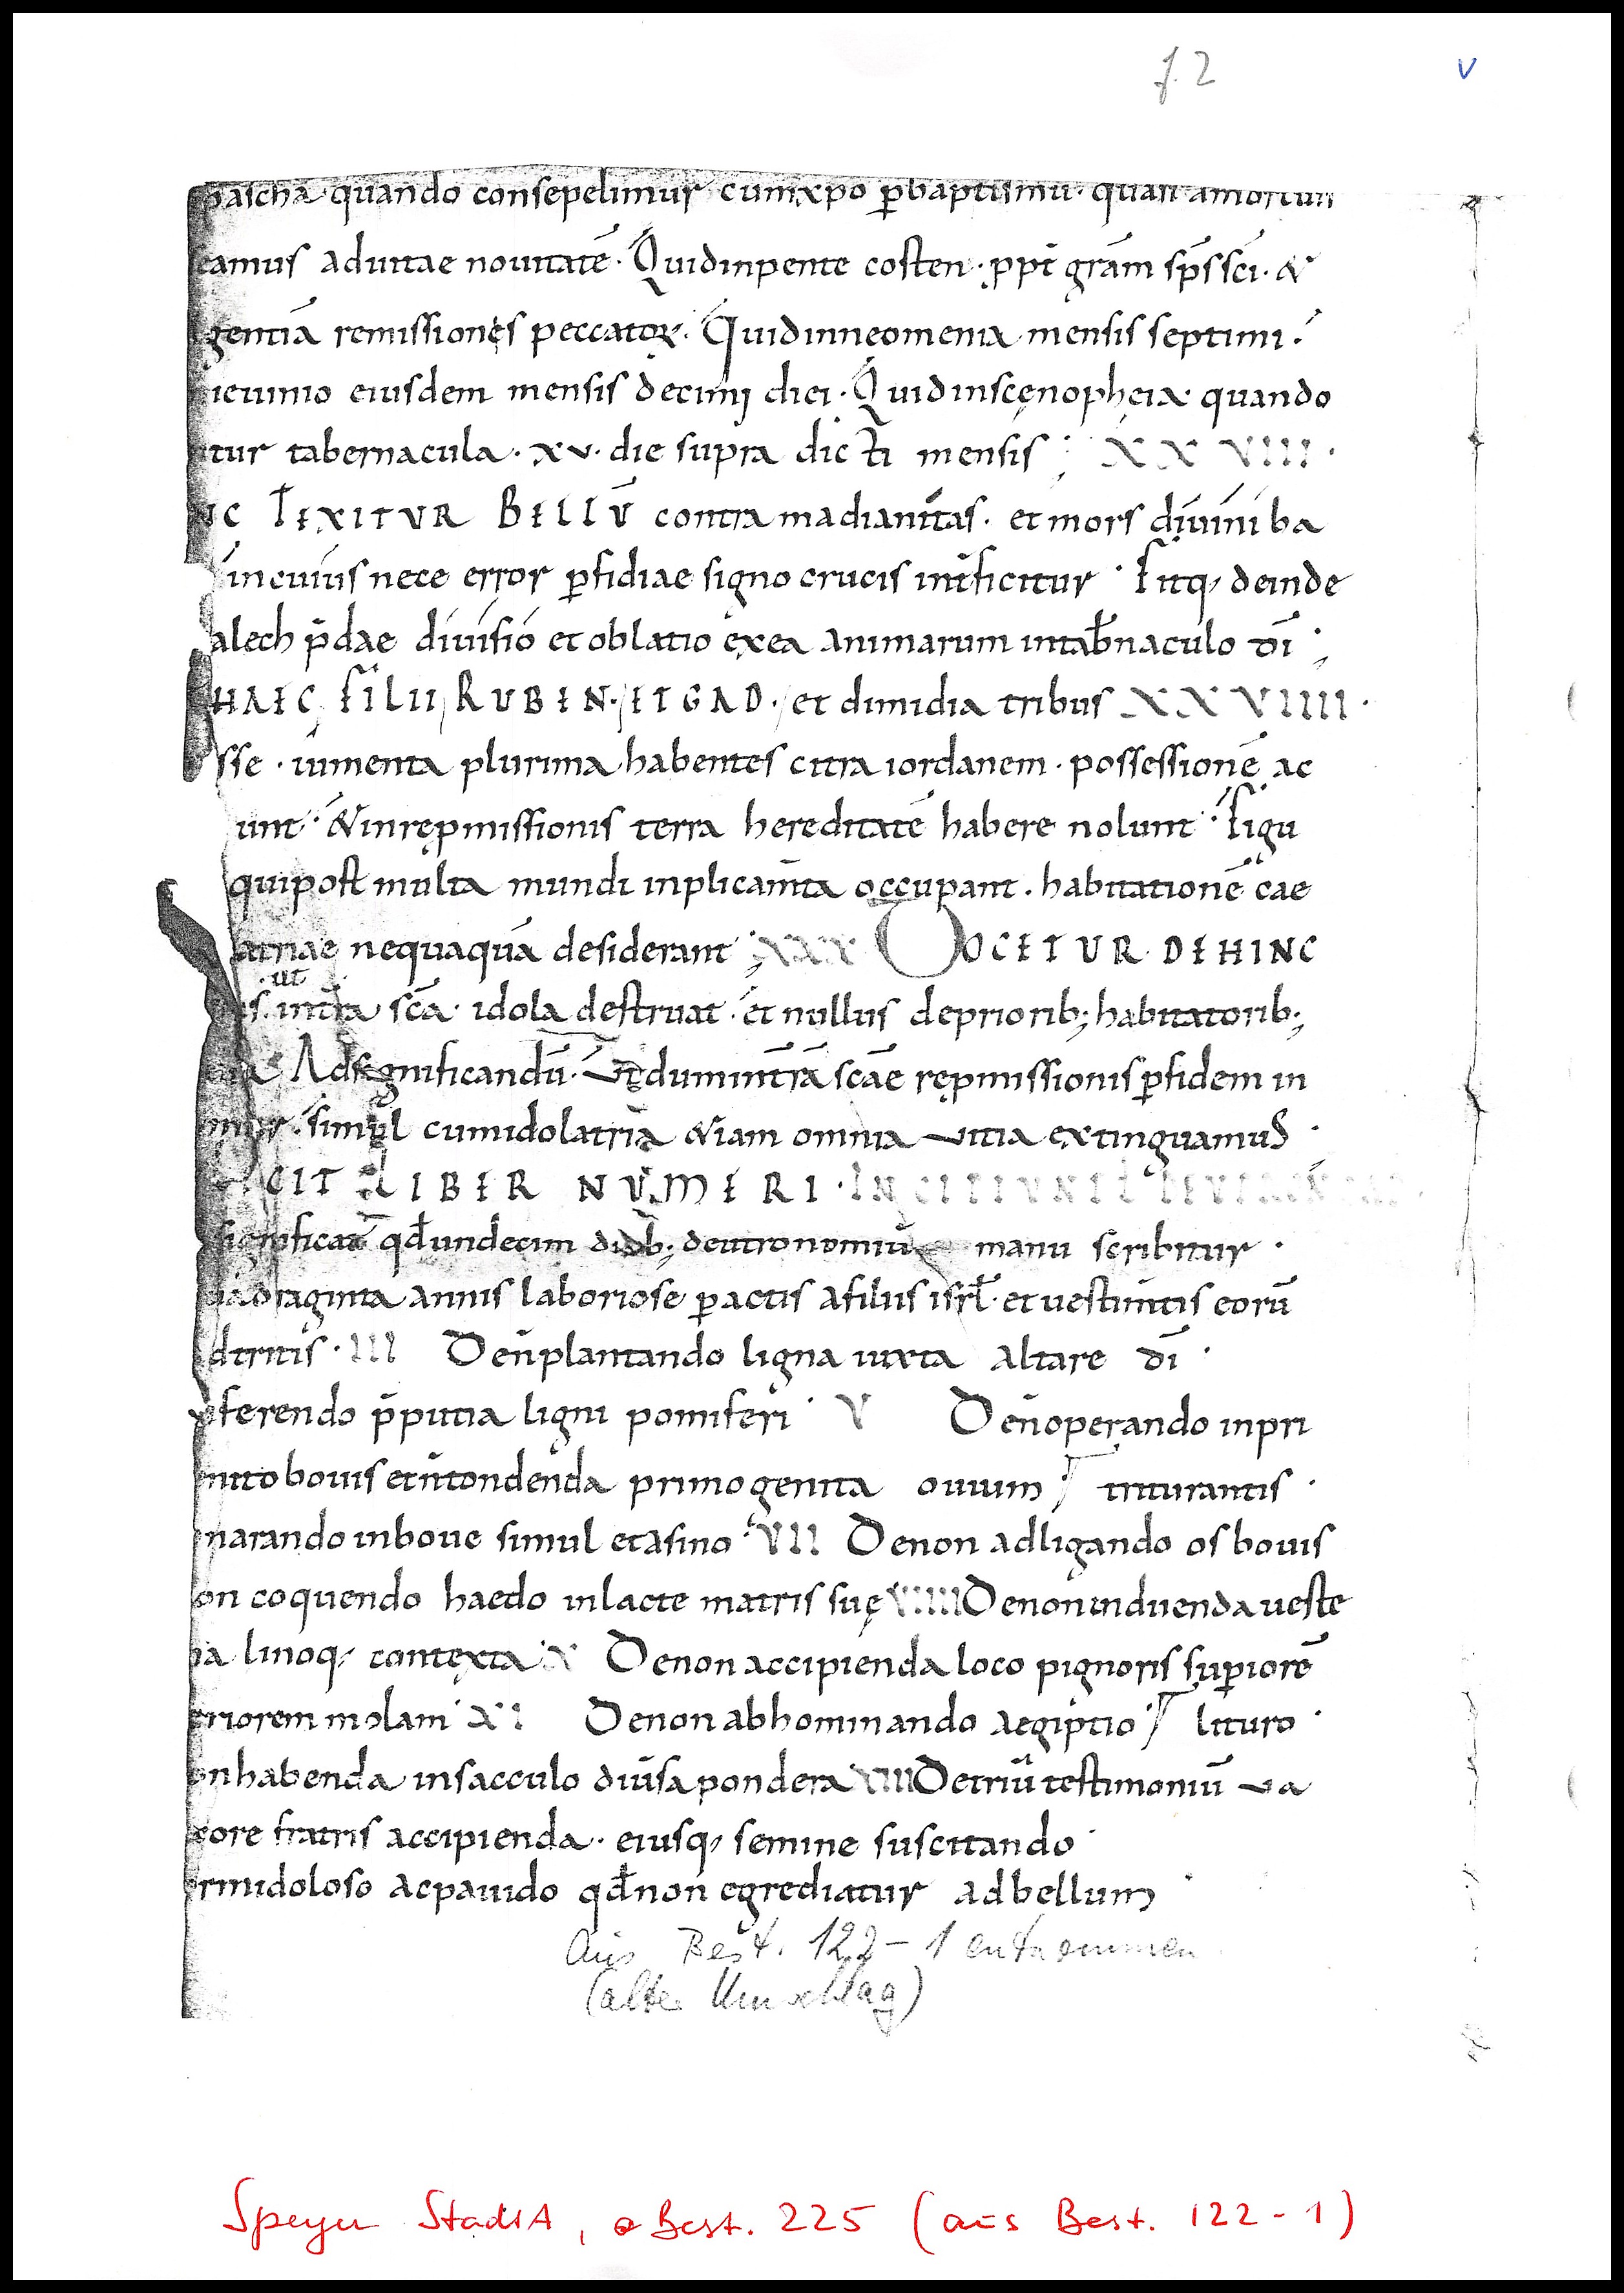 f. 2
v
pascha quando consepelimur cumxpo ꝑbaptismū · quasi amortuis
camus aduitae nouitatē · Quidinpente costen · ꝓpt̄ gr̄am sp̄s sc̄i · &
gentiā remissiones peccatoꝝ · Quidinneomenia mensis septimi ·
ieiunio eiusdem mensis decimi diei · Quidinscęnopheia quando
ntur tabernacula · xv · die supra dicti mensis ; XXVIII ·
NC TEXITVR BELLV̄ contra madianitas · et mors diuini ba
incuius nece error ꝑfidiae signo crucis int̄ficitur · Fitq, deinde
alech p̄dae diuisio et oblatio exea animarum intab̄naculo dī ;
HAEC FILII RVBEN · ETGAD · et dimidia tribus XXVIIII ·
sse · iumenta plurima habentes citra iordanem · possessionē ac
unt · &inrępmissionis terra hereditatē habere nolunt · Figu
quipost multa mundi inplicam̄ta occupant · habitationē cae
atriae nequaquā desiderant ; XXX DOCETUR DEHINC
· ut
is · int̄ra sc̄a · idola destruat · et nullus depriorib; habitatorib;
Adsignificandū · Ut duminterrā sc̄ae rępmissionis ꝑfidem in
mur · simul cumidolatria &iam omnia uitia extinguamus ·
CIT LIBER NVMERI ·
significat qđundecim dieb; deutronomiū manu scribitur ·
uadraginta annis laboriose ꝑactis afiliis isrl̄ · et uestim̄tis eorū
dtritis · III Denplantando ligna iuxta altare dī ·
uferendo p̄putia ligni pomiferi · V Denoperando inpri
nitobouis etn̄tondenda primogenita ouium / triturantis ·
narando inboue simul etasino · VII Denon adligando os bouis
on coquendo haedo inlacte matris suę VIIII Denoninduenda ueste
na linoq, contexta X Denon accipienda loco pignoris suꝑiorē
eriorem molam · XI Denon abhominando aegiptio / lituro ·
onhabenda insacculo diūsa pondera XIII Detriū testimoniū ua
xore fratris accipienda · eiusq, semine suscitando ·
ormidoloso acpauido qđnon egrediatur adbellum ·
Aus Best. 122-1 entnommen
(alter Umschlag)
Speyer StadtA, Best. 225 (aus Best. 122-1)